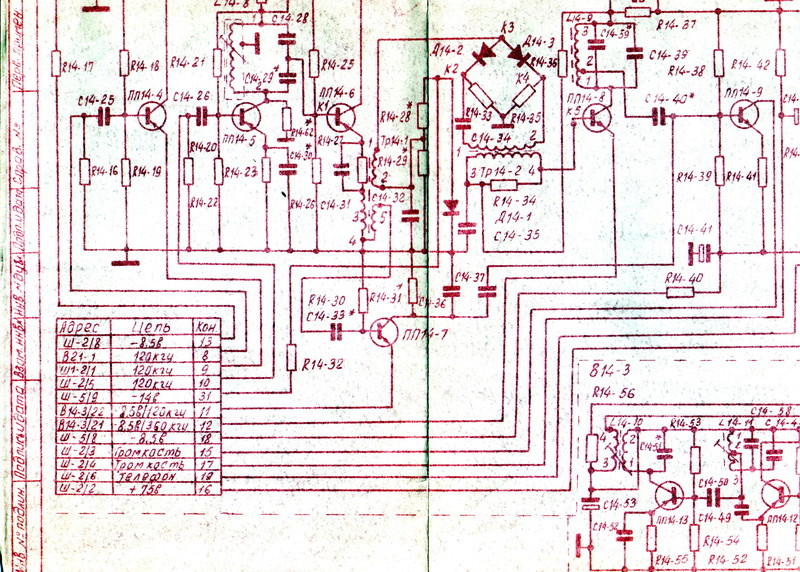 L14-8
C14-28
R14-17
R14-18
R14-21
C14-29*
R14-25
ПП14-4
ПП14-6
C14-25
C14-26
K1
ПП14-5
R14-62
R14-16
R14-19
R14-20
R14-23
R14-22
C14-30*
R14-27
R14-26
C14-31
1
Тр14-1
2
3
4
5
C14-32
R14-28*
R14-29*
K3
Д14-2
Д14-3
K2
K4
R14-36
R14-33
R14-35
C14-34
1
2
3
4
Тр14-2
R14-34
Д14-1
C14-35
L14-9
3
2
1
C14-39
R14-37
R14-38
R14-42
ПП14-8
K5
C14-40*
ПП14-9
R14-39
R14-41
C14-41
R14-40
C14-37
C14-36
R14-30
R14-31
C14-33*
ПП14-7
R14-32
Адрес Цепь Кон
Ш-2/8 -8,5в 13
В21-1 120кгц 8
Ш1-2/1 120кгц 9
Ш-2/5 120кгц 10
Ш-5/9 -14в 31
В14-3/22 8,5в/120кгц 11
В14-3/21 8,5в/360кгц 12
Ш-5/8 -8,5в 18
Ш-2/3 Громкость 15
Ш-2/4 Громкость 17
Ш-2/6 Телефон 19
Ш-2/2 +75в 16
814-3
R14-56
L14-10
4
3
1
2
C14-51*
R14-53
L14-11
C14-58
C14-53
C14-52
ПП14-13
C14-50
C14-49
ПП14-12
R14-55
R14-54
R14-52
R14-51
Инв. № подлин.
Подпись и дата
Взам. инв. №